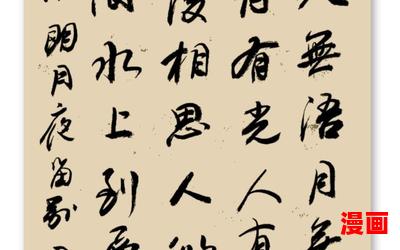 人無語月無
月有光人有
後相思人似
間水上到
明月夜留别
漫画